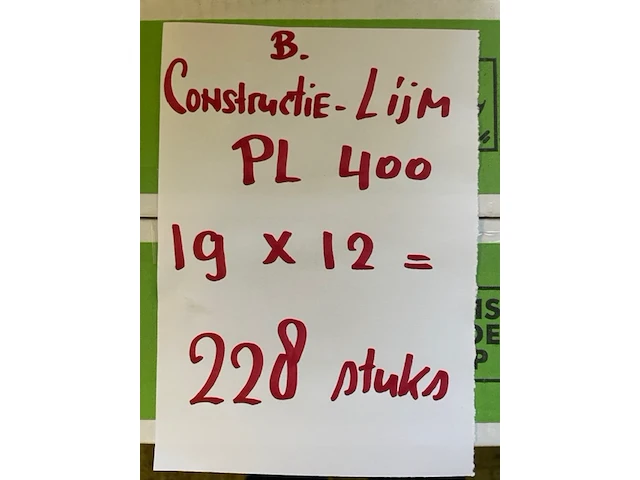 B.
Constructie-Lijm
PL 400
19 x 12 =
228 stuks